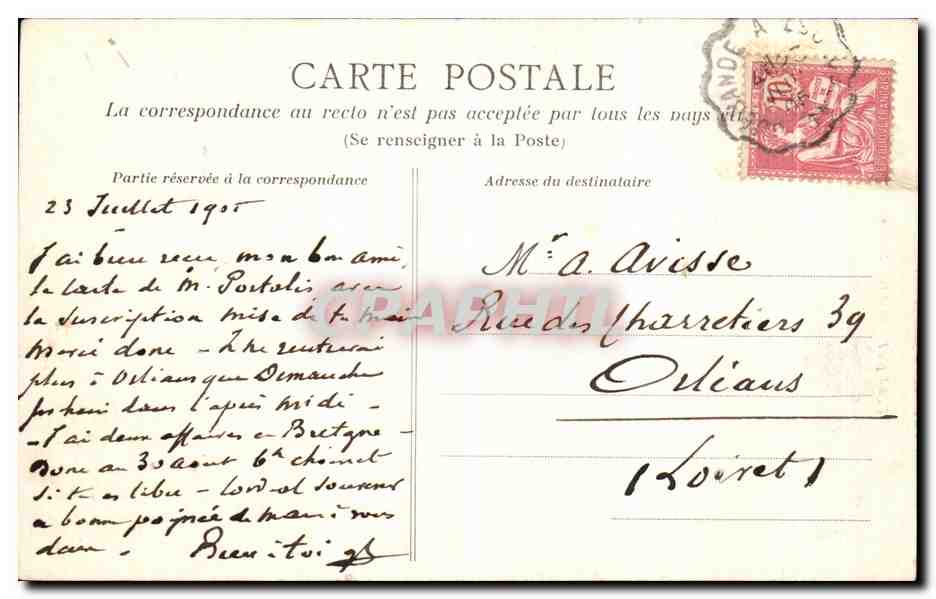 CARTE POSTALE
La correspondance au recto n'est pas acceptée par tous les pays
(Se renseigner à la Poste)
Partie réservée à la correspondance
Adresse du destinataire
23 Juillet 1905
J'ai bien reçu, mon bon ami,
la carte de M. Portalis avec
la suscription mise de ta main
merci donc - Je ne rentrerai
plus à Orléans que Dimanche
prochain dans l'après midi -
- J'ai deux affaires en Bretagne -
Donc au 30 aout 6h
si tu es libre - Cordial souvenir
a bonne poignée de main à vous
deux - Bien à toi
Mr. A. Avisse
Rue des Charretiers 39
Orléans
(Loiret)
10
CPAPHIL